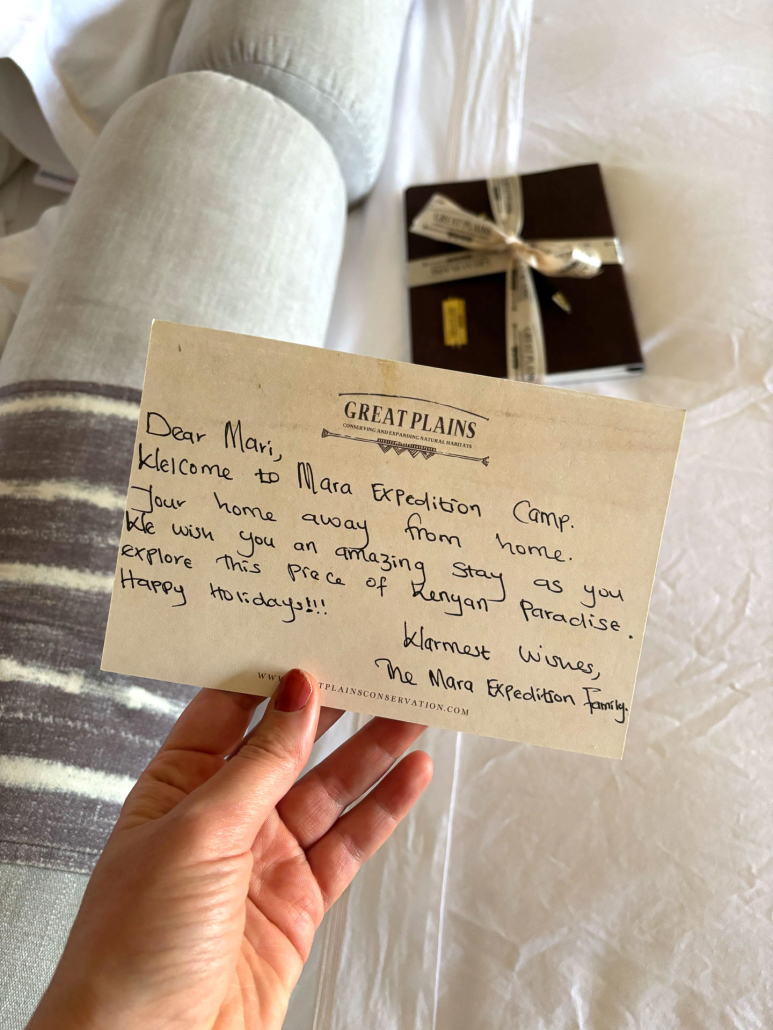 GREAT PLAINS
CONSERVING AND EXPANDING NATURAL HABITATS
Dear Mari,
Welcome to Mara Expedition Camp.
Your home away from home.
We wish you an amazing stay as you
explore this piece of Kenyan Paradise.
Happy Holidays!!!
Warmest Wishes,
The Mara Expedition Family.
TPLAINSCONSERVATION.COM
GREAT PLAINS